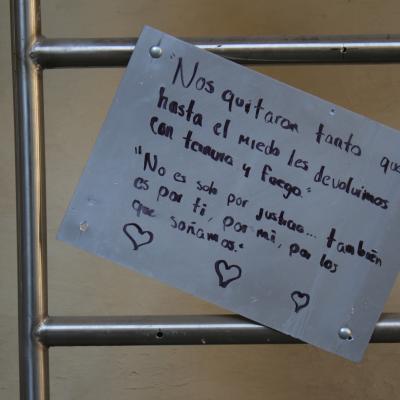 "Nos quitaron tanto que
hasta el miedo les devolvimos
con ternura y fuego."
"No es solo por justicia... también
es por ti, por mi, por los
que soñamos."